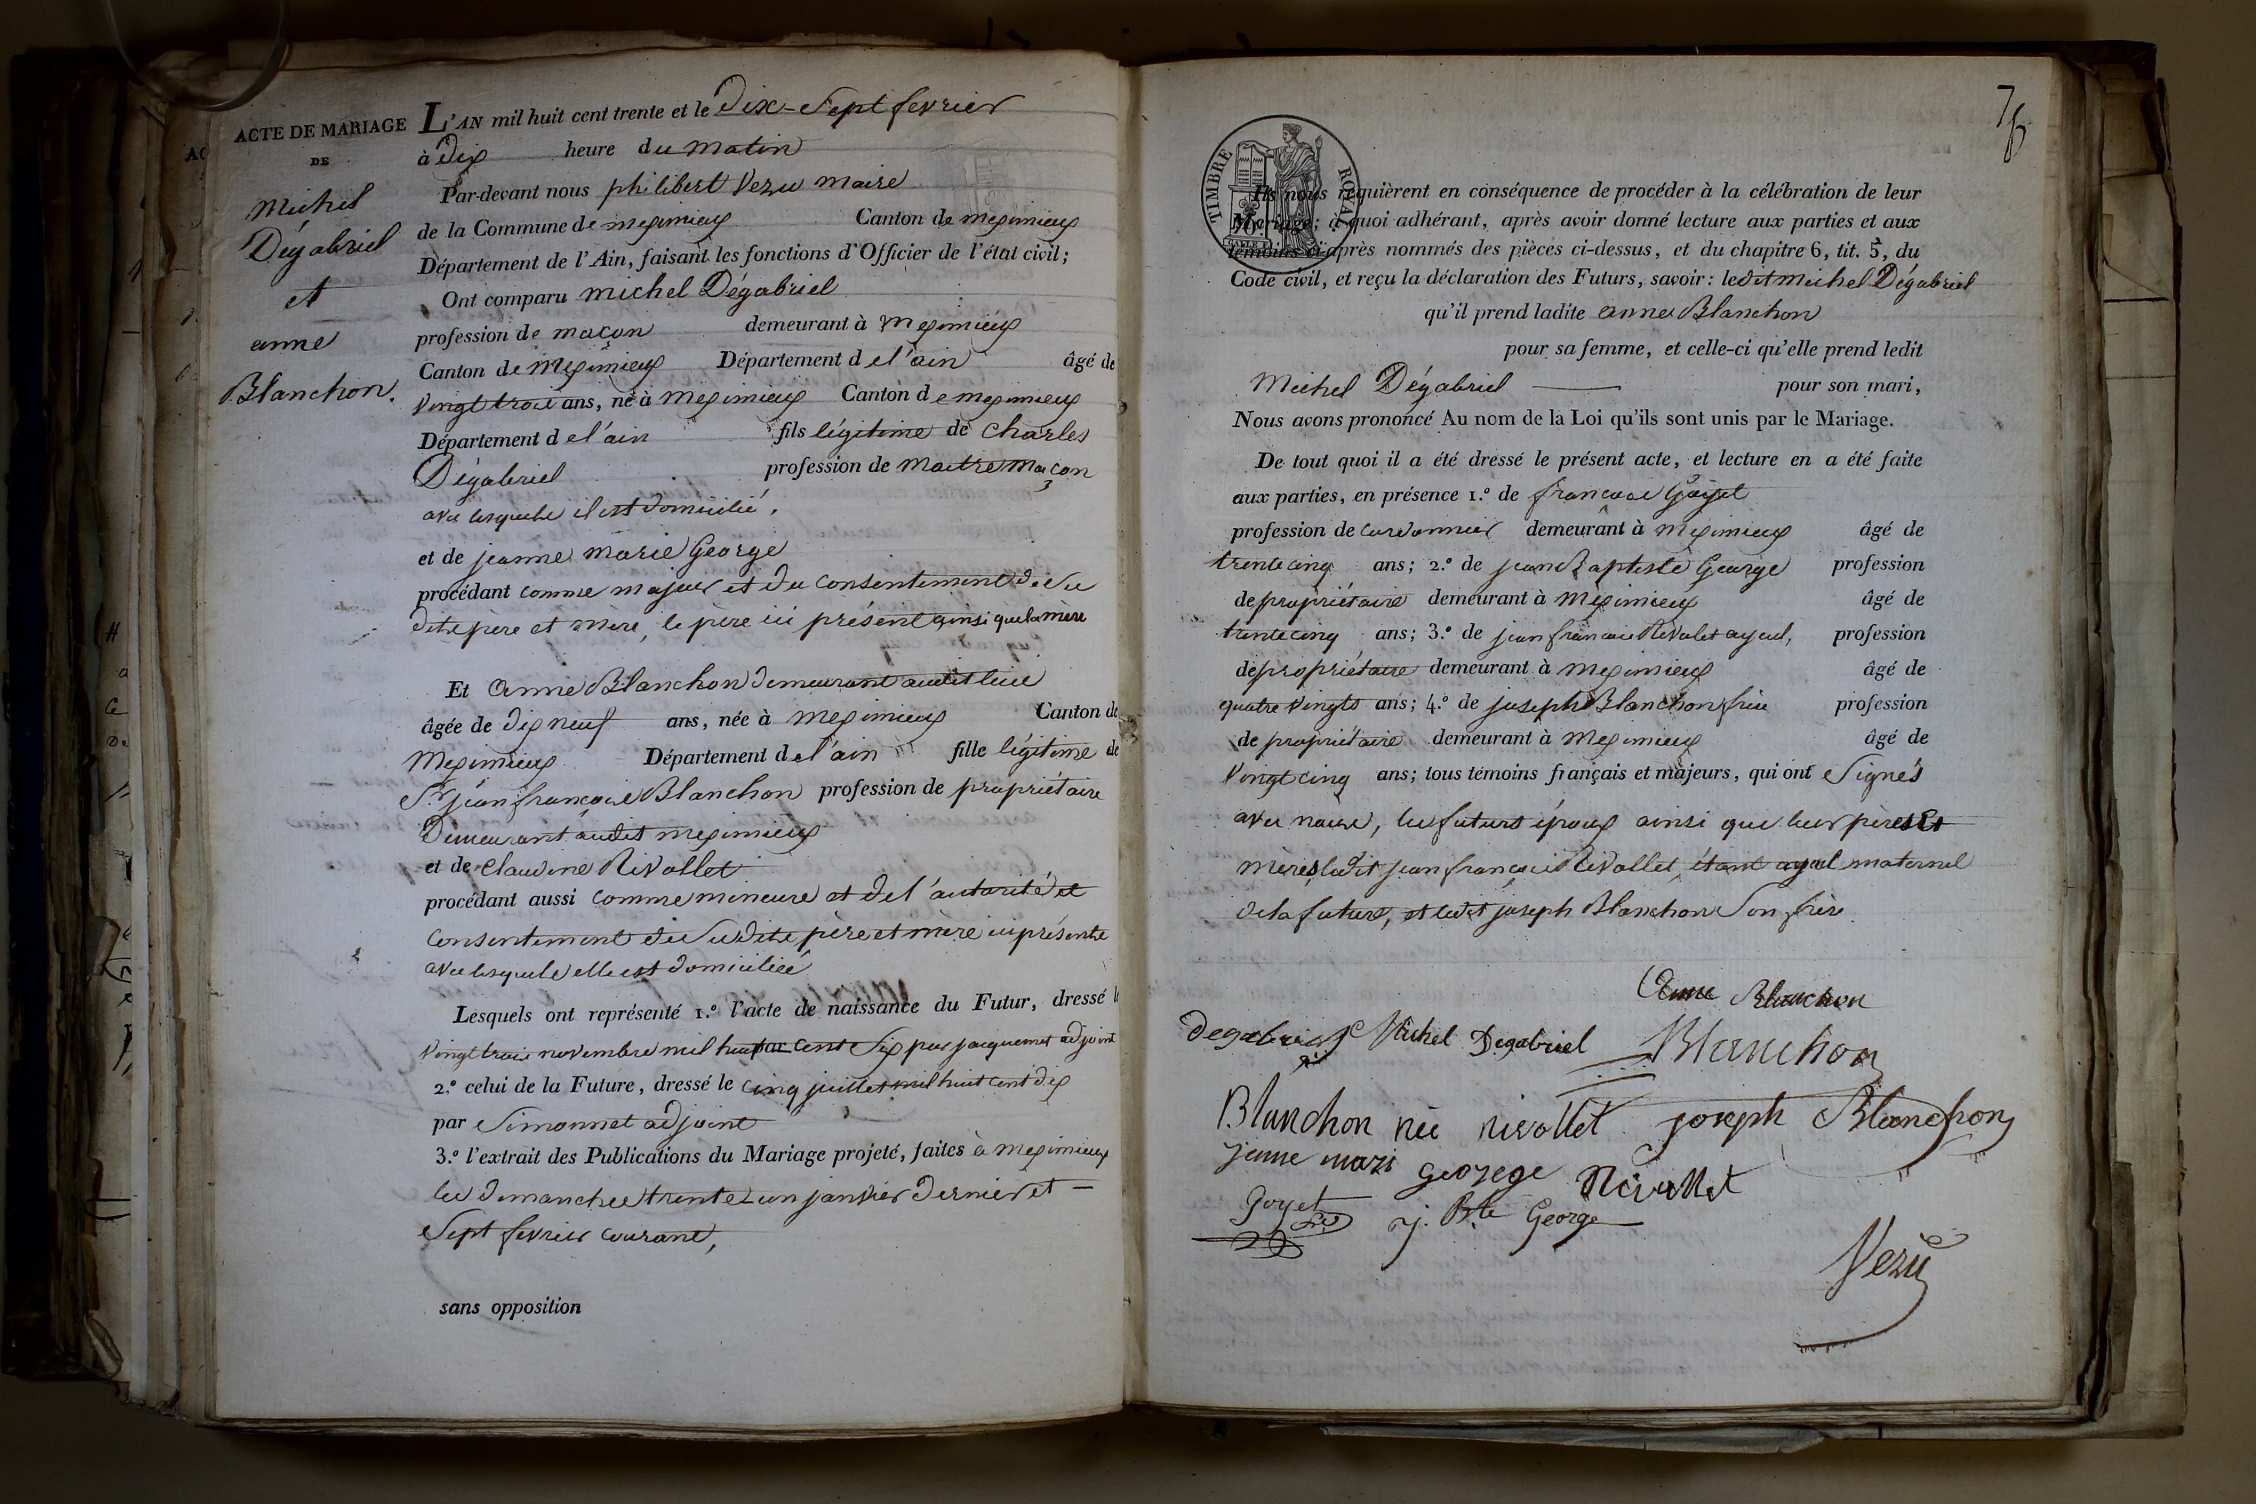 ACTE DE MARIAGE
DE
Michel
Dégabriel
et
anne
Blanchon.
L'AN mil huit cent trente et le Dix-Sept fevrier
à Dix heure du matin
Par-devant nous philibert Vezu maire
de la Commune de meximieux Canton de meximieux
Département de l'Ain, faisant les fonctions d'Officier de l'état civil;
Ont comparu michel Dégabriel
profession de maçon demeurant à meximieux
Canton de Meximieux Département de l'ain âgé de
Vingt trois ans, né à Meximieux Canton de meximieux
Département de l'ain fils légitime de Charles
Dégabriel profession de maitre maçon
avec lesquels il est domicilié.
et de jeanne marie George
procédant comme majeur et du consentement de ses
dits père et mère, le père ici présent ainsi que la mère
Et Anne Blanchon demeurant audit lieu
âgée de dix neuf ans, née à meximieux Canton de
Meximieux Département de l'ain fille légitime de
Sr jean françois Blanchon profession de propriétaire
Demeurant audit meximieux
et de Claudine Rivollet
procédant aussi comme mineure et de l'autorité et
Consentement de susdits père et mère ici présents
avec lesquels elle est domiciliée
Lesquels ont représenté 1.º l'acte de naissance du Futur, dressé le
vingt trois novembre mil huit cent Six par jacquemet adjoint
2.º celui de la Future, dressé le cinq juillet mil huit cent dix
par Simonnet adjoint
3.º l'extrait des Publications du Mariage projeté, faites à meximieux
les dimanches trente un janvier dernier et
Sept fevrier courant,
sans opposition
76
TIMBRE ROYAL
Ils nous requièrent en conséquence de procéder à la célébration de leur
Mariage; à quoi adhérant, après avoir donné lecture aux parties et aux
témoins ci-après nommés des pièces ci-dessus, et du chapitre 6, tit. 5, du
Code civil, et reçu la déclaration des Futurs, savoir: ledit michel Dégabriel
qu'il prend ladite anne Blanchon
pour sa femme, et celle-ci qu'elle prend ledit
Michel Dégabriel pour son mari,
Nous avons prononcé Au nom de la Loi qu'ils sont unis par le Mariage.
De tout quoi il a été dressé le présent acte, et lecture en a été faite
aux parties, en présence 1.º de françois Goyet
profession de cordonnier demeurant à meximieux âgé de
trente cinq ans; 2.º de jean Baptiste George profession
de propriétaire demeurant à Meximieux âgé de
trente cinq ans; 3.º de jean françois Rivolet ayeul, profession
de propriétaire demeurant à meximieux âgé de
quatre Vingts ans; 4.º de joseph Blanchon frère profession
de propriétaire demeurant à Meximieux âgé de
Vingt cinq ans; tous témoins français et majeurs, qui ont Signés
avec nous, les futurs époux ainsi que leurs pères Et
mères, ledit jean françois Rivollet, étant ayeul maternel
de la future, et ledit joseph Blanchon Son frère
Anne Blanchon
Degabriel Michel Degabriel Blanchon
Blanchon née rivollet joseph Blanchon
jenne mari George Rivollet
Goyet j. Bte George
Vezu